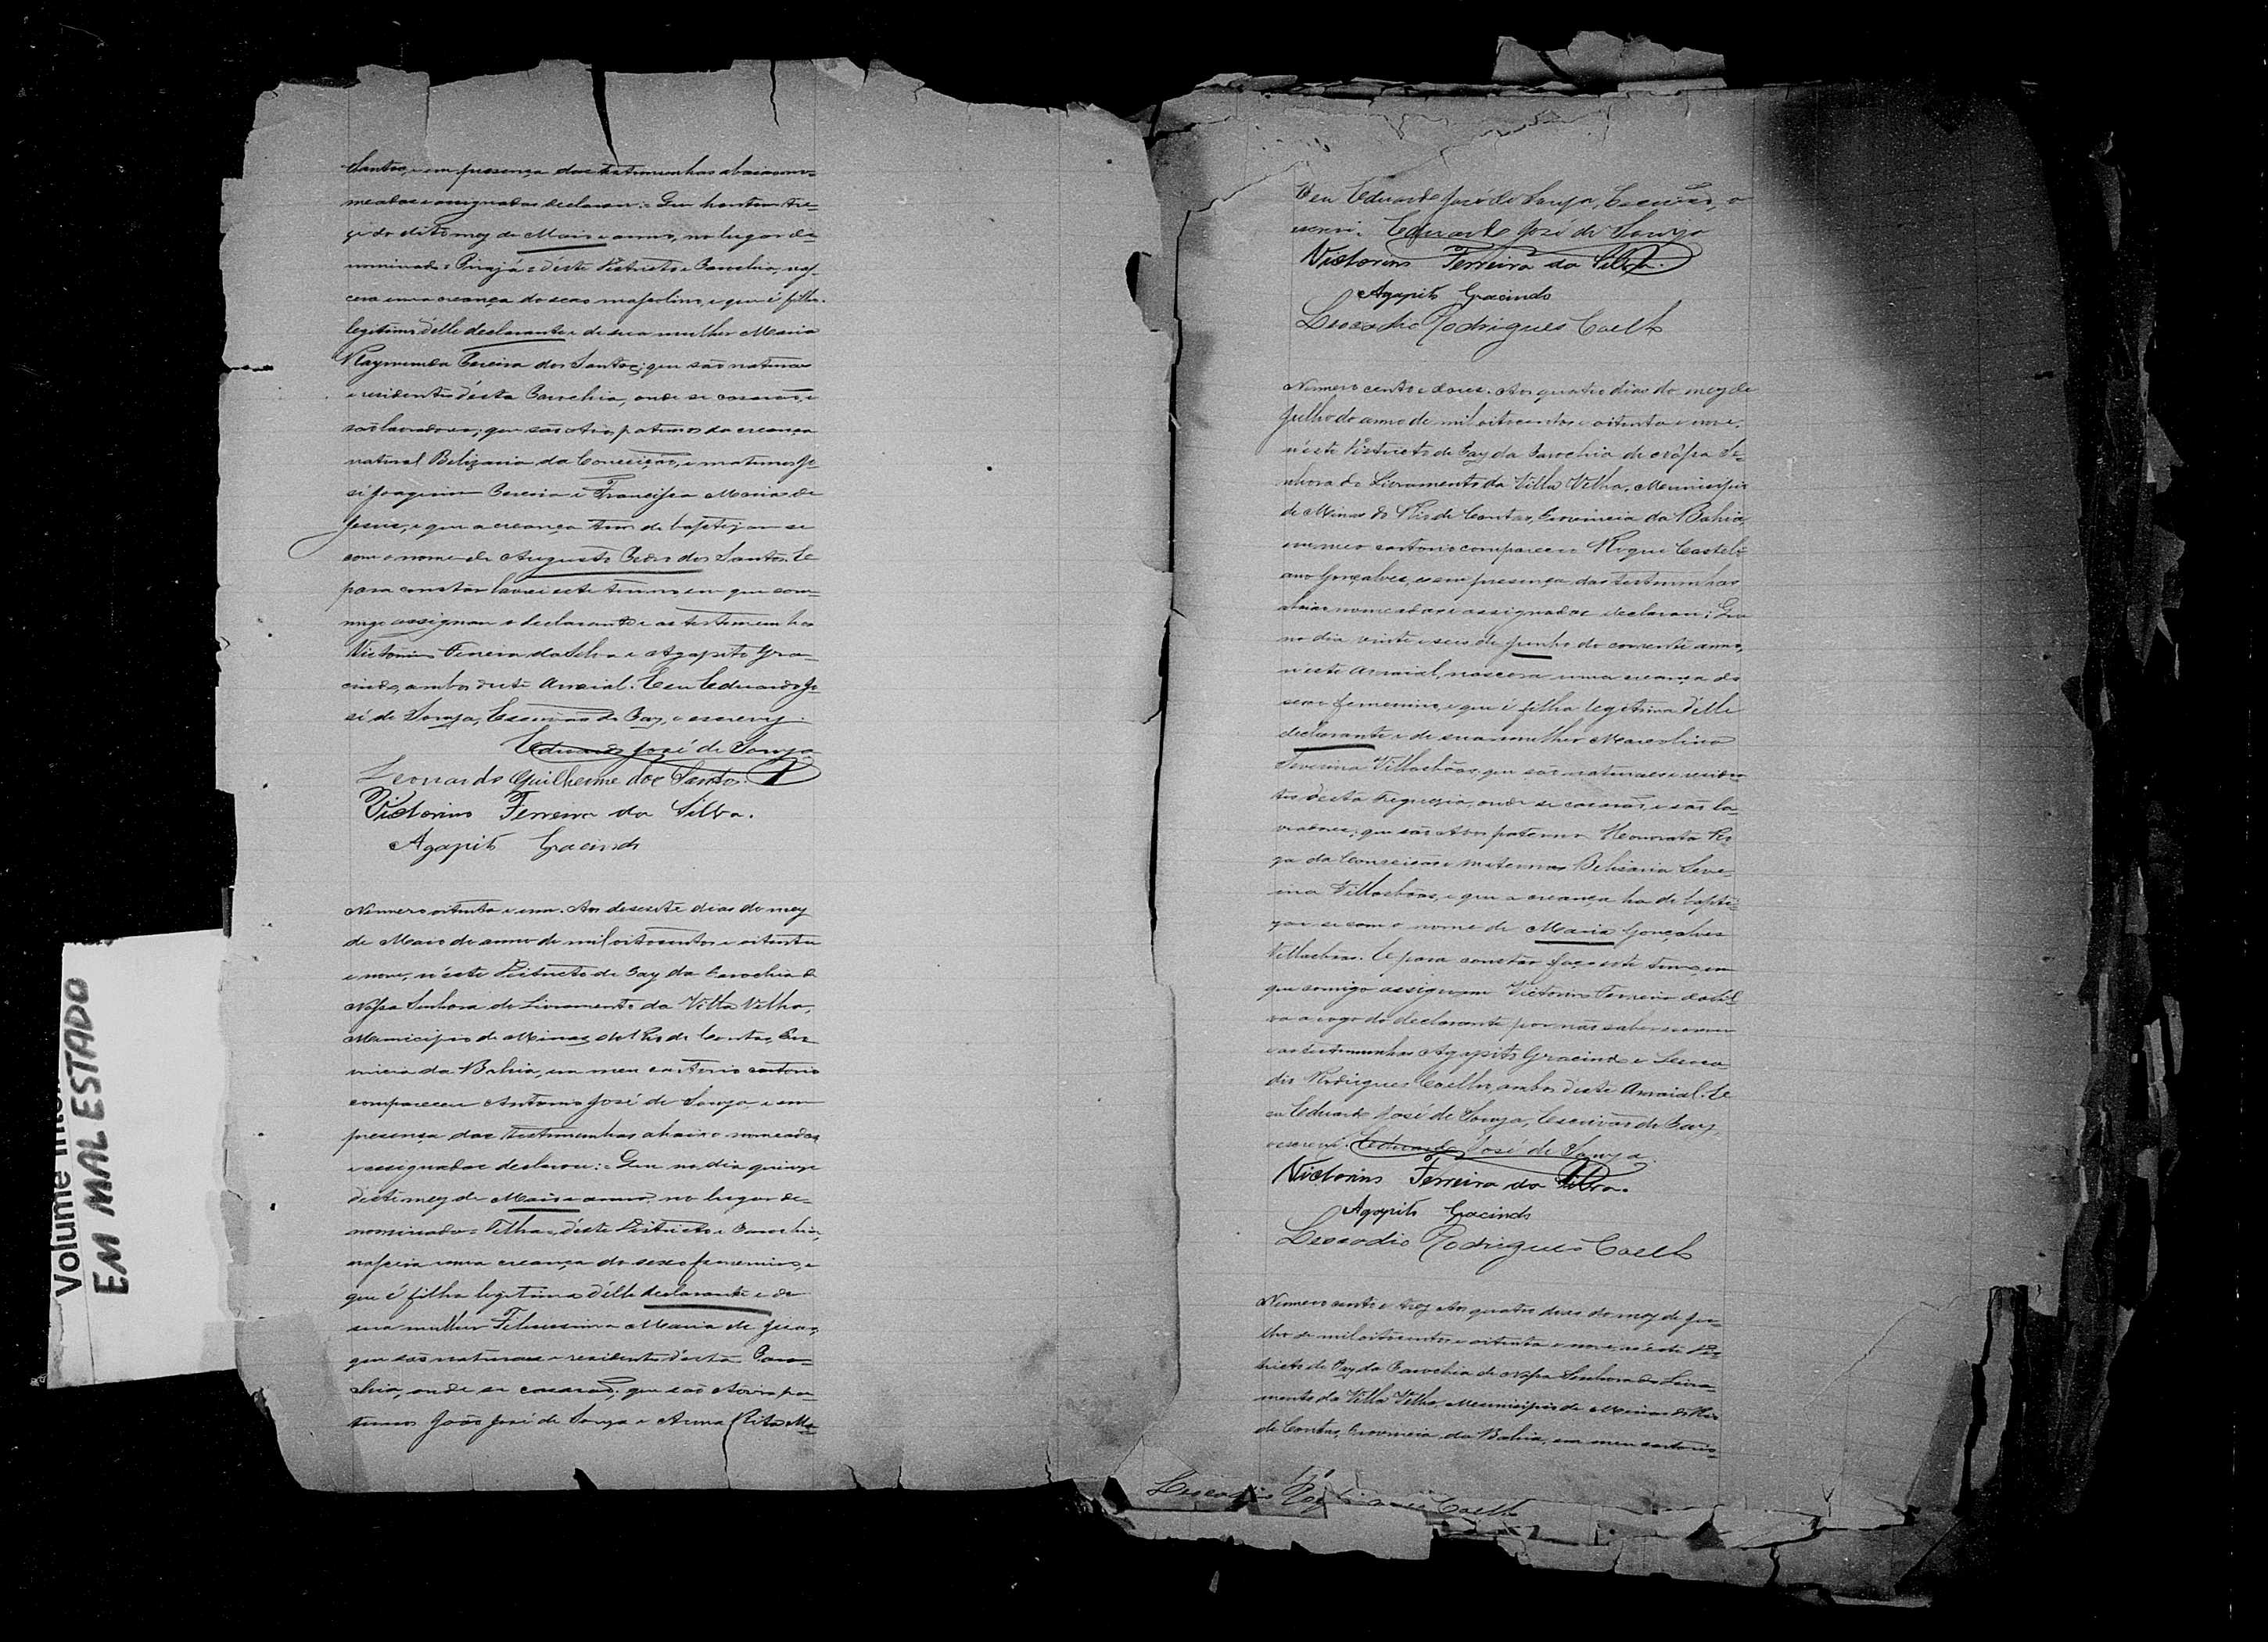 Santos, e em presença das testemunhas abaixo no-
meadas e assignadas declarou: Que hontem tre-
ze do dito mez de Maio e anno, no lugar de-
nominado: Pirajá: d'este Districto e Parochia, nas-
cera uma creança do sexo masculino, e que é filho
legitimo d'elle declarante e de sua mulher Maria
Raymunda Pereira dos Santos; que são naturaes
e residentes d'esta Parochia, onde se casarão, e
são lavradores; que são Avós paternos da creança
natural Belizaria da Conceição, e maternos Jo-
sé Joaquim Pereira e Francisca Maria de
Jesus, e que a creança tem de baptizar-se
com o nome de Augusto dos Santos. E
para constar lavrei este termo, em que com-
migo assignam o declarante e as testemunhas
Victorino Ferreira da Silva e Agapito Gra-
cindo, ambos deste Arraial. E eu Eduardo Jo-
sé de Souza, Escrivão de Paz, o escrevy.
Eduardo José de Souza
Leonardo Guilherme dos Santos.
Victorino Ferreira da Silva.
Agapito Gracindo
Numero oitenta e um. Aos desesete dias do mez
de Maio do anno de mil oitocentos e oitenta
e nove, n'éste Districto de Paz da Parochia de
Nossa Senhora do Livramento da Villa Velha,
Municipio de Minas do Rio de Contas, Pro-
vincia da Bahia, em meu cartorio
compareceu Antonio José de Souza, e em
presença das testemunhas abaixo nomeadas
e assignadas declarou: Que no dia quinze
d'este mez de Maio e anno, no lugar de-
nominado: Telha: d'este Districto e Parochia,
nascera uma creança do sexo femenino, e
que é filha legitima d'elle declarante e de
sua mulher Maria de Jesus,
que são naturaes e residentes d'esta Paro-
chia, onde se casarão; que são Avós pa-
ternos João José de Souza e Anna Rita Ma-
Eu Eduardo José de Souza, Escrivão, o
escrevi. Eduardo José de Souza
Victorino Ferreira da Silva.
Agapito Gracindo
Leocadio Rodrigues Coelho
Numero cento e doues. Aos quatro dias do mez de
Julho do anno de mil oitocentos e oitenta e nove,
n'éste Districto de Paz da Parochia de Nossa Se-
nhora do Livramento da Villa Velha, Municipio
de Minas do Rio de Contas, Provincia da Bahia,
em meo cartorio compareceu Roque Casteli-
ano Gonçalves, e em presença das testemunhas
abaixo nomeadas e assignadas declarou: Que
no dia vinte e seis de Junho do corrente anno,
n'este Arraial, nascera uma creança do
sexo femenino, e que é filha legitima d'elle
declarante e de sua mulher Marcolina
Severina Villasbôas, que são naturaes e residen-
tes desta Freguezia, onde se casarão, e são la-
vradores; que são Avós paterna Honorata Ro-
za da Conceição e materna Belisaria Seve-
rina Villasbôas, e que a creança ha de bapti-
zar-se com o nome de Maria Gonçalves
Villasbôas. E para constar faço este termo em
que comigo assignam Victorino Ferreira da Sil-
va a rogo do declarante por não saber escrever
e as testemunhas Agapito Gracindo e Leoca-
dio Rodrigues Coelho, ambos deste Arraial. E
eu Eduardo José de Souza, Escrivão de Paz,
o escrevi. Eduardo José de Souza.
Victorino Ferreira da Silva.
Agapito Gracindo
Leocadio Rodrigues Coelho
Numero cento e trez. Aos quatro dias do mez de Ju-
lho de mil oitocentos e oitenta e nove, n'éste Dis-
tricto de Paz da Parochia de Nossa Senhora do Livra-
mento da Villa Velha, Municipio de Minas do Rio
de Contas, Provincia da Bahia, em meu cartorio
Leocadio Rodrigues Coelho
Volume
EM MAL ESTADO